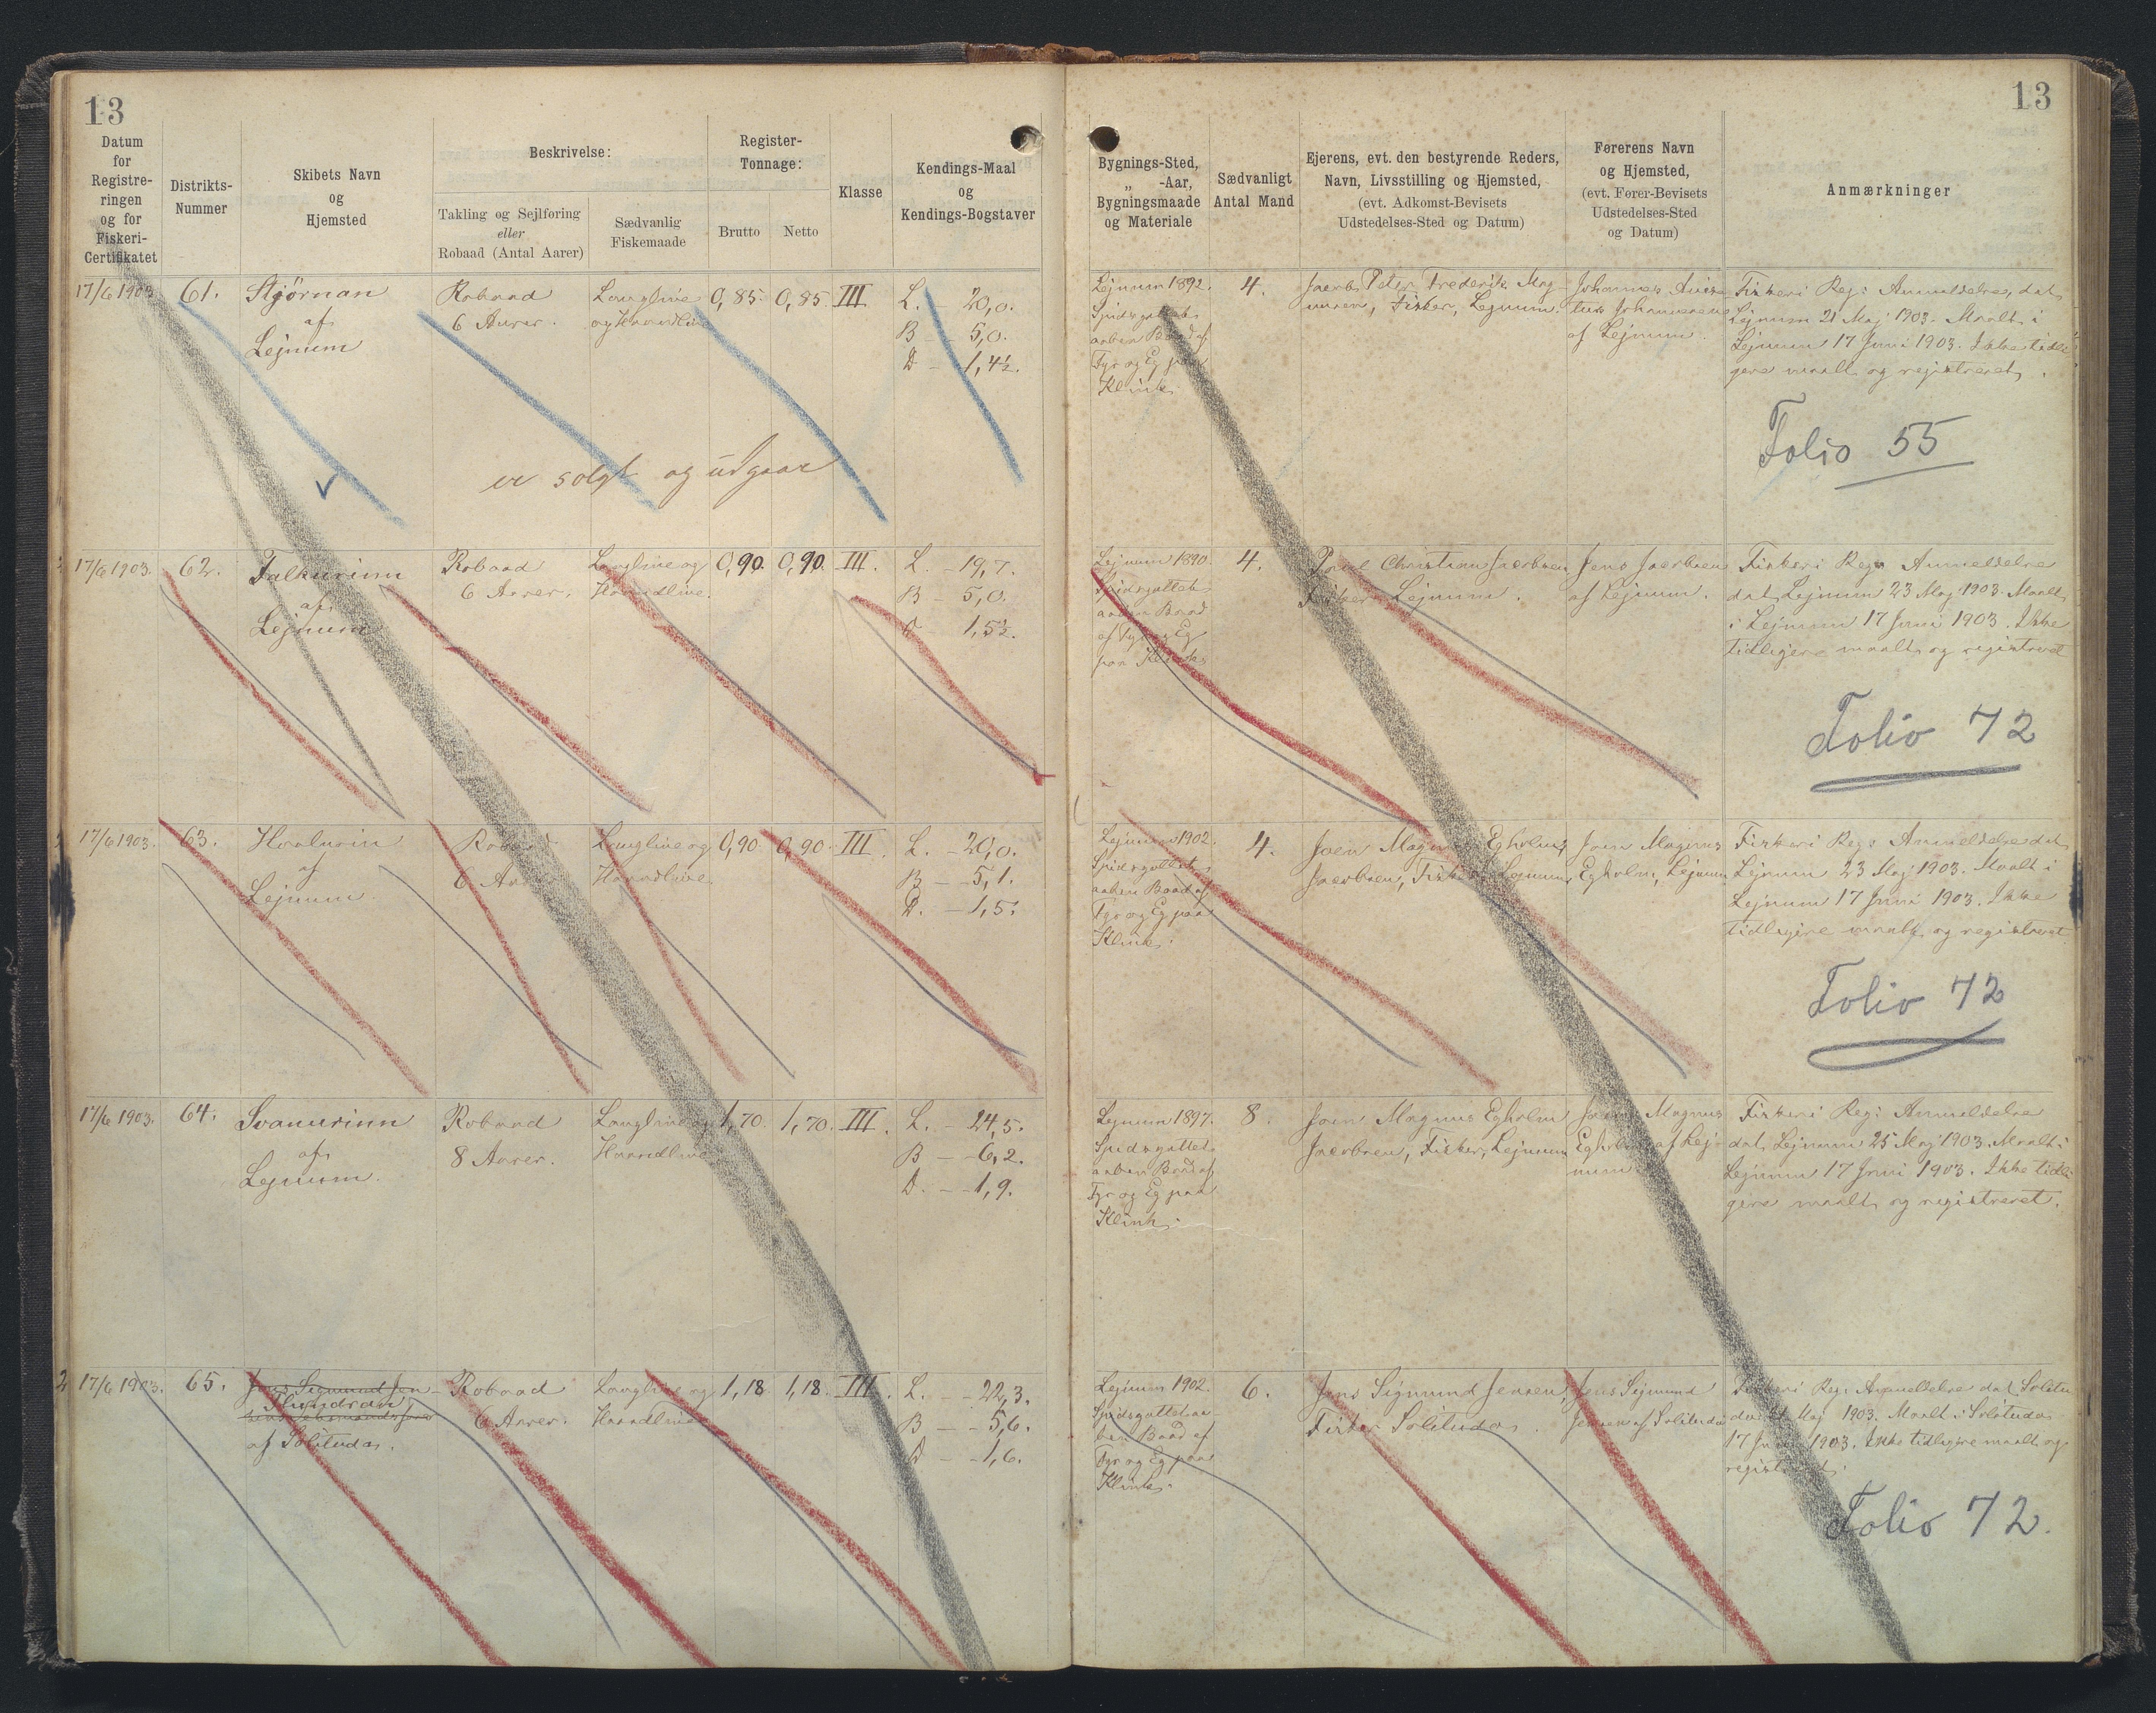 13
Datum
for
Registre-
ringen
og for
Fiskeri-
Certifikatet
Distrikts-
Nummer
Skibets Navn
og
Hjemsted
Beskrivelse:
Takling og Sejlføring
eller
Robaad (Antal Aarer)
Sædvanlig
Fiskemaade
Register-
Tonnage:
Brutto
Netto
Klasse
Kendings-Maal
og
Kendings-Bogstaver
17/6 1903
61.
Stjörnan
af
Lejnum
Robaad
6 Aarer.
Langline
og Haandline
0,85.
0,85
III
L. - 20,0.
B - 5,0.
D - 1,4½.
er solgt og udgaar
17/6 1903.
62.
Falkurinn
af
Lejnum
Robaad
6 Aarer.
Langline og
Haandline.
0,90.
0,90.
III.
L. - 19,7.
B - 5,0.
D - 1,5½.
17/6 1903.
63.
Hvalurin
af
Lejnum
Robaad
6 Aarer
Langline og
Haandline.
0,90
0,90.
III.
L. - 20,0.
B - 5,1.
D. - 1,5.
17/6 1903.
64.
Svanurinn
af
Lejnum.
Robaad
8 Aarer.
Langline og
Haandline
1,70.
1,70.
III.
L. - 24,5.
B - 6,2.
D. - 1,9.
2
17/6 1903.
65.
Jens Sigmund Jen-
af Solitudas.
Robaad
6 Aarer.
Langline og
Haandline
1,18
1,18.
III.
L. - 22,3.
B - 5,6.
D - 1,6.
13
Bygnings-Sted,
„ -Aar,
Bygningsmaade
og Materiale
Sædvanligt
Antal Mand
Ejerens, evt. den bestyrende Reders,
Navn, Livsstilling og Hjemsted,
(evt. Adkomst-Bevisets
Udstedelses-Sted og Datum)
Førerens Navn
og Hjemsted,
(evt. Fører-Bevisets
Udstedelses-Sted
og Datum)
Anmærkninger
Lejnum 1892.
Spidsgattet
aaben Baad af
Fyr og Eg paa
Klink.
4.
Jacob Peter Frederik Mag-
nusen, Fisker, Lejnum.
Johannes
Johannesen
af Lejnum.
Fiskeri Reg: Anmeldelse, dat.
Lejnum 21 Maj 1903. Maalt i
Lejnum 17 Juni 1903. Ikke tidli-
gere maalt og registreret.
Folio 55
Lejnum 1890.
Spidsgattet
aaben Baad
af Fyr og Eg
paa Klink
4.
Christian Jacobsen
Fisker Lejnum.
Jens Jacobsen
af Lejnum.
Fiskeri Reg: Anmeldelse
dat. Lejnum 23 Maj 1903. Maalt
i Lejnum 17 Juni 1903. Ikke
tidligere maalt og registreret
Folio 72
Lejnum 1902.
Spidsgattet
aaben Baad af
Fyr og Eg paa
Klink.
4.
Joen Magnus Egholm
Jacobsen, Fisker, Lejnum,
Joen Magnus
Egholm, Lejnum
Fiskeri Reg: Anmeldelse dat.
Lejnum 23 Maj 1903. Maalt i
Lejnum 17 Juni 1903. Ikke
tidligere maalt og registreret
Folio 72
Lejnum 1897.
Spidsgattet
aaben Baad af
Fyr og Eg paa
Klink.
8.
Joen Magnus Egholm
Jacobsen, Fisker, Lejnum
Joen Magnus
Egholm af Lej-
num.
Fiskeri Reg: Anmeldelse
dat. Lejnum 25 Maj 1903. Maalt i
Lejnum 17 Juni 1903. Ikke tidli
gere maalt og registreret.
Lejnum 1902.
Spidsgattet aa-
ben Baad af
Fyr og Eg paa
Klink.
6.
Jens Sigmund Jensen,
Fisker Solitudas.
Jens Sigmund
Jensen af Solitudas
Fiskeri Reg: Anmeldelse dat. Solitu
das Maj 1903. Maalt i Solitudas
17 Juni 1903. Ikke tidligere maalt og
registreret.
Folio 72.